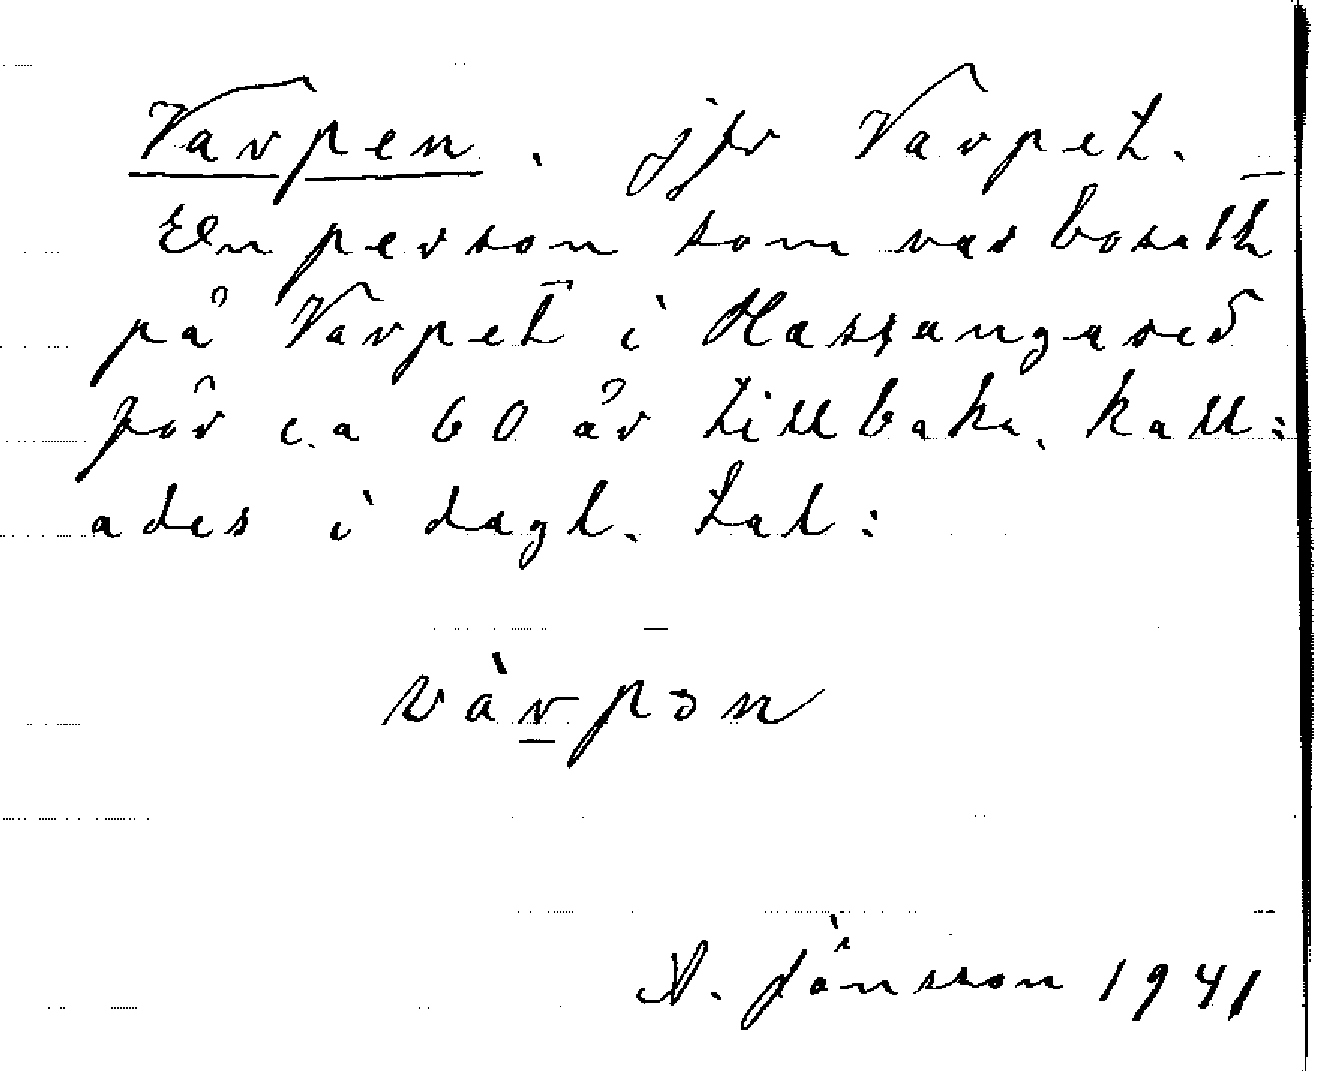 Varpen. jfr Varpet.
En person som var bosatt
på Varpet i Hassungared
för c.a 60 år tillbaka, kall:
ades i dagl. tal:
vàrpən
A. Jönsson 1941